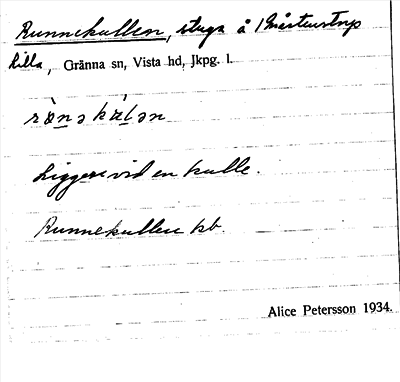 Runnekullen, stuga å Mårtenstorp
Lilla, Gränna sn, Vista hd, Jkpg. l.
Ligger vid en kulle.
Runnekullen kb.
Alice Petersson 1934.